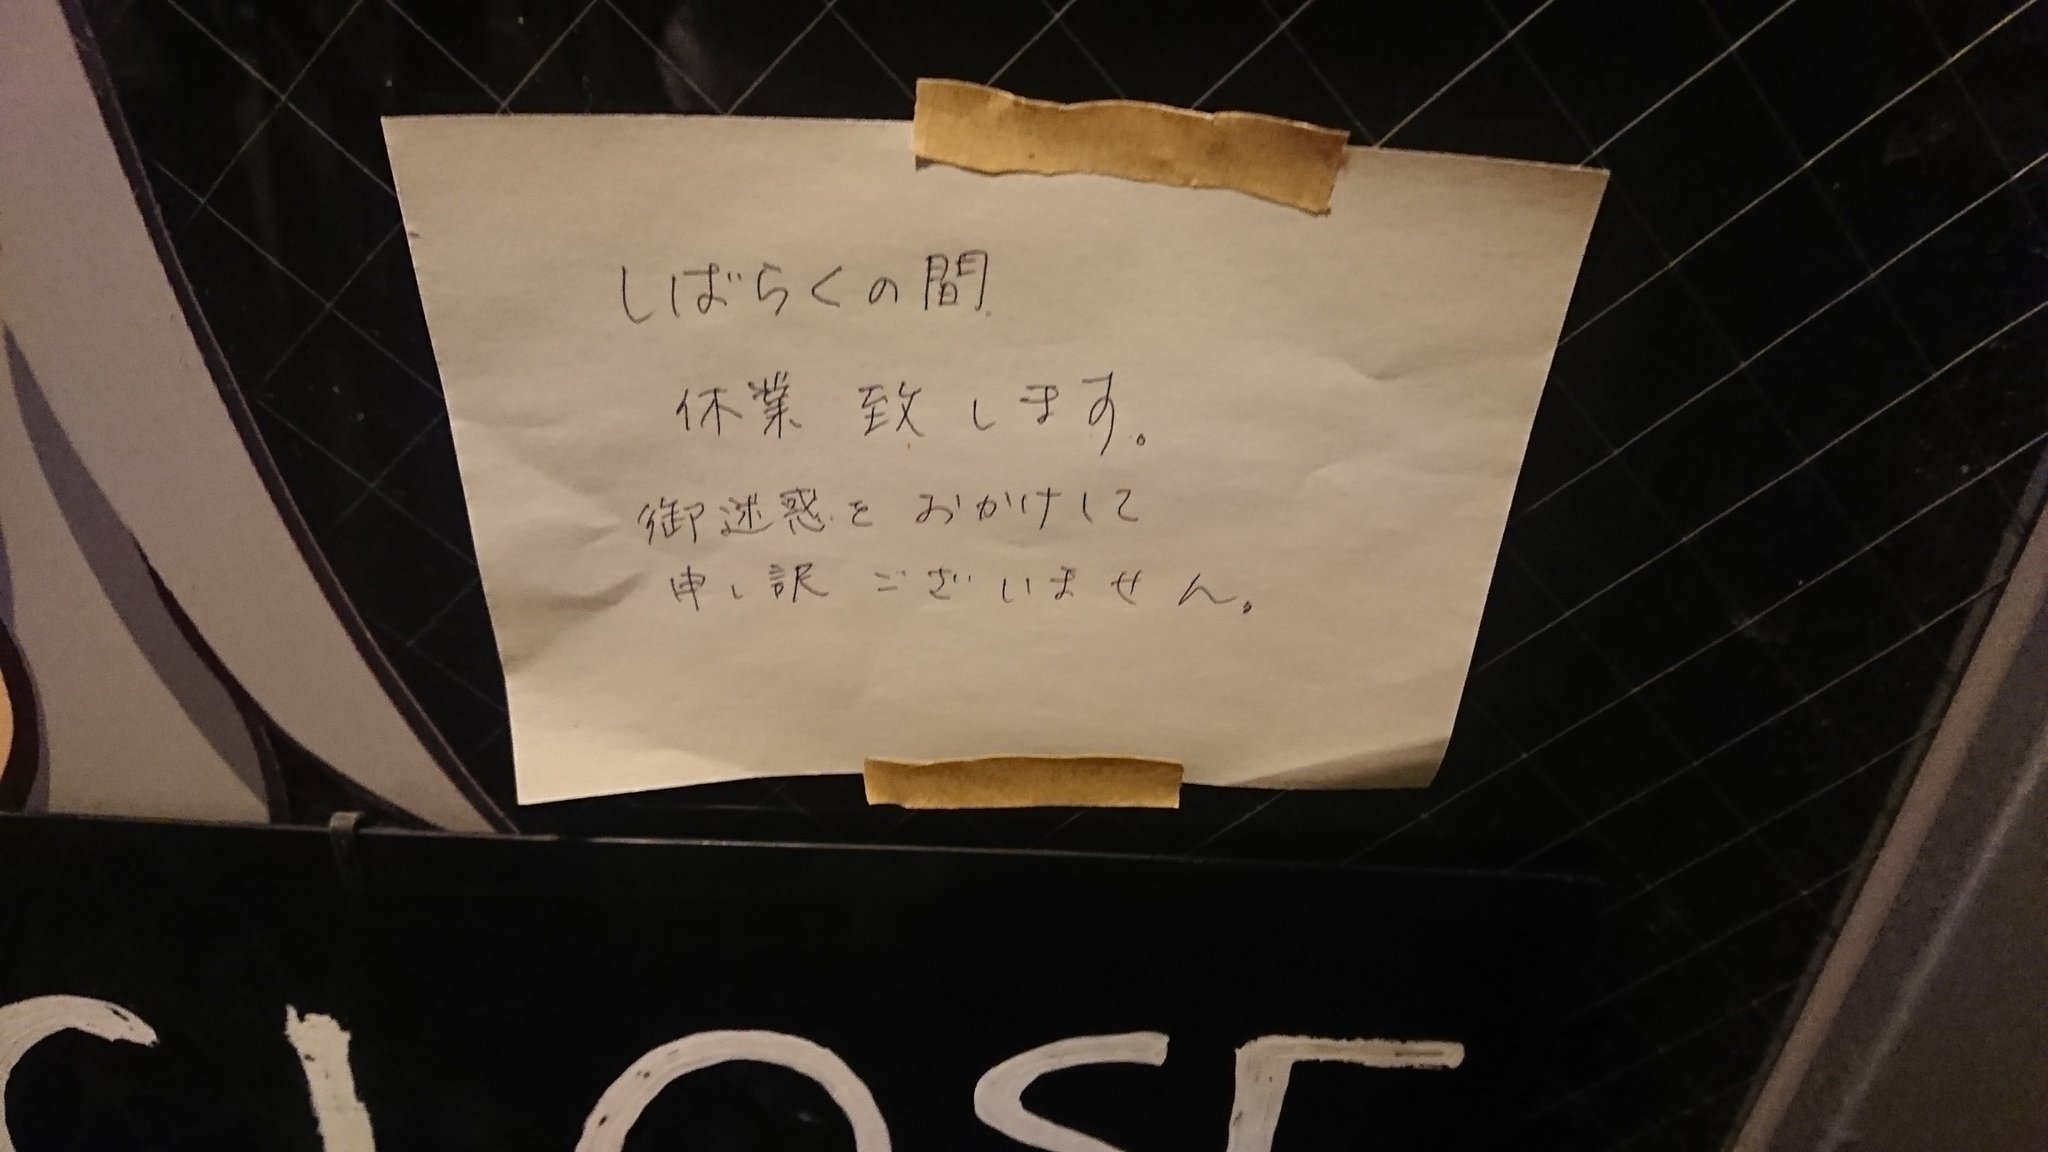 しばらくの間
休業 致します。
御迷惑を おかけして
申し訳 ございません。
CLOSE